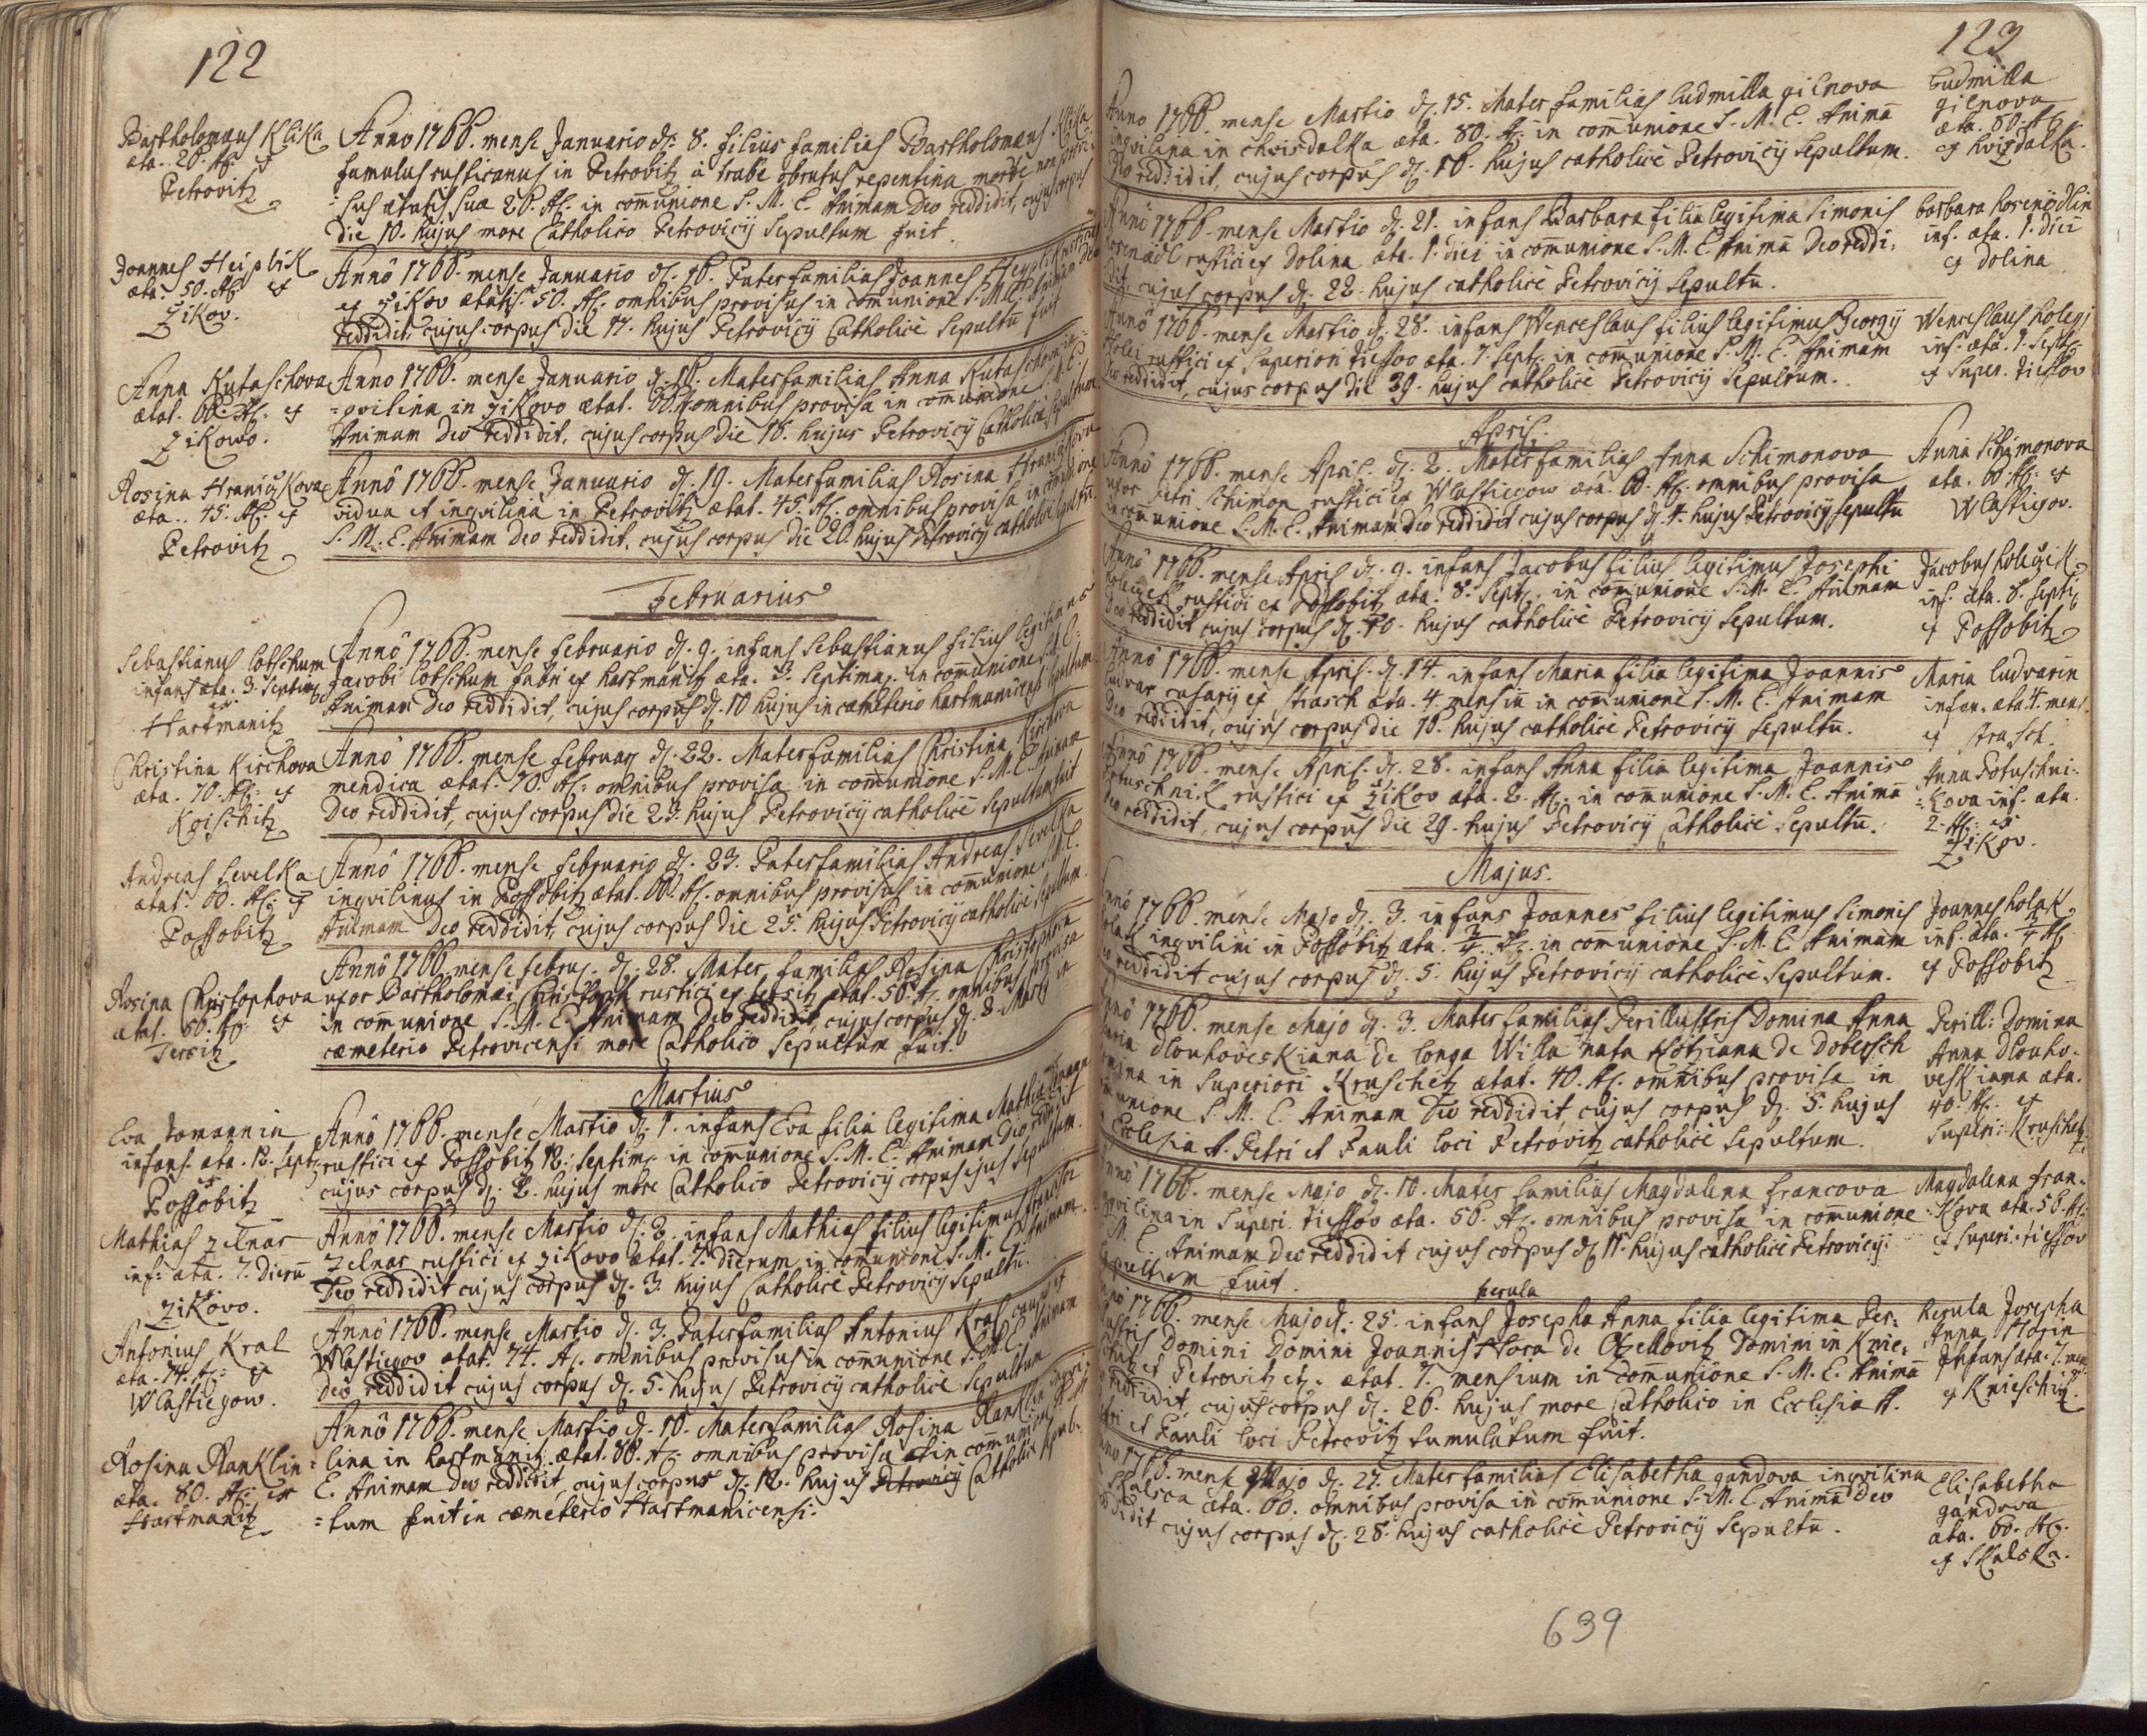 122
Bartholomæus Klika
æta. 26. As. ex
Petrovitz
Anno 1766. mense Januario d. 8. filius familias Bartholomæus Klika
famulus rusticanus in Petrovitz à trabe obrutus repentina morte
ætatis suæ 26. As. in comunione S. M. E. Animam Deo reddidit, cujus corpus
die 10. hujus more Catholico Petrovicij Sepultum fuit.
Joannes Heiplik
æta. 50. As. ex
Zikov.
Annô 1766. mense Januario d. 16. Paterfamilias Joannes
ex Zikov ætatis 50. As. omnibus provisus in comunione S. M. E. Animam Deo
reddidit, cujus corpus die 17. hujus Petrovicij Catholicè Sepultū fuit
Anna Kutaschova
ætat. 66. As. ex
Zikowo.
Anno 1766. mense Januario d. 16. Materfamilias Anna Kutaschova in-
=qvilina in Zikovo ætat. 66. omnibus provisa in comunione S. M. E.
Animam Deo reddidit, cujus corpus die 18. hujus Petrovicij Catholicè Sepultum
Rosina Hranizkova
æta. 45. As. ex
Petrovitz
Annô 1766. mense Januario d. 19. Materfamilias Rosina Hranizkova
vidua et inqvilina in Petrovitz ætat. 45. As. omnibus provisa in comunione
S. M. E. Animam Deo reddidit, cujus corpus die 20. hujus Petrovicij catholicè Sepultū.
Februarius
Sebastianus Lotschum
infans æta. 3. Septim.
ex
Hartmanitz
Annô 1766. mense Februario d. 9. infans Sebastianus filius legitimus
Jacobi Lotschum fabri ex Hartmanitz æta. 3. Septima. in comunione S. M. E.
Animam Deo reddidit, cujus corpus d. 10 hujus in cæmeterio hartmanicensi Sepultum
Christina Kirchova
æta. 70. As. ex
Kgischitz
Annô 1766. mense Februar. d. 22. Materfamilias Christina
mendica ætat. 70. As. omnibus provisa in comunione S. M. E. Animam
Deo reddidit, cujus corpus die 23. hujus Petrovicij catholicè Sepultum fuit
Andreas Sevelka
ætat. 60. As. ex
Possobitz
Annô 1766. mense Februario d. 23. Paterfamilias Andreas Sevelka
inqvilinus in Possobitz ætat. 60. As. omnibus provisus in comunione S. M. E.
Animam Deo reddidit, cujus corpus die 25. hujus Petrovicij catholicè Sepultum.
Rosina Christophova
ætat. 50. As. ex
Tersitz
Annô 1766. mense Februa. d. 28. Mater familias Rosina Christophova
uxor Bartholomæi Christoph rustici ex Tersitz ætat. 50. As. omnibus provisa
in comunione S. M. E. Animam Deo reddidit, cujus corpus d. 2. Martij in
cæmeterio Petrovicensi more Catholico Sepultum fuit.
Martius
Eva Tomannin
infans. æta. 12. Sept.
ex
Possobitz
Annô 1766. mense Martio d. 1. infans Eva filia legitima Mathiæ
rustici ex Possobitz 12. Septim. in comunione S. M. E. Animam Deo reddidit
cujus corpus d. 2. hujus more Catholico Petrovicij corpus ejus Sepultum.
Mathias Zelnar
inf: æta. 7. dierū
ex
Zikovo.
Annô 1766. mense Martio d. 2. infans Mathias filius legitimus
Zelnar rustici ex Zikovo ætat. 7. dierum, in comunione S. M. E. Animam
Deo reddidit cujus corpus d. 3. hujus Catholicè Petrovicij Sepultū.
Antonius Kral
æta. 74. As. ex
Wlastiegow.
Annô 1766. mense Martio d. 3. Paterfamilias Antonius Kral
Wlastiegov ætat. 74. As. omnibus provisus in comunione S. M. E. Animam
Deo reddidit cujus corpus d. 5. hujus Petrovicij catholicè Sepultum
Rosina Ranklin
æta. 80. As. ex
Hartmanitz
Annô 1766. mense Martio d. 10. Materfamilias Rosina Ranklin inqvi-
=lina in hartmanitz. ætat. 80. As. omnibus provisa in comunione S. M.
E. Animam Deo reddidit, cujus corpus d. 12. hujus Petrovicij Catholicè Sepul-
=tum fuit in cæmeterio Hartmanicensi.
123
Anno 1766. mense Martio d. 15. Mater familias Ludmilla gilnova
inqvilina in Chvisdalka æta. 80. As. in comunione S. M. E. Animā
Deo reddidit, cujus corpus d. 16. hujus catholicè Petrovicij Sepultum.
Ludmilla
gilnova
æta. 80. As.
ex hvizdalka.
Annô 1766. mense Martio d. 21. infans Barbara filia legitima Simonis
rustici ex Dolina æta. 1. diei in comunione S. M. E. Animā Deo reddi-
dit, cujus corpus d. 22. hujus catholicè Petrovicij Sepultū.
barbara
inf. æta. 1. diei
ex dolina
Annô 1766. mense Martio d. 28. infans Wenceslaus filius legitimus Georgij
rustici ex Superiori Tiessov æta. 7. Sept. in comunione S. M. E. Animam
Deo reddidit, cujus corpus die 29. hujus catholicè Petrovicij Sepultum.
Wenceslaus holegj
inf. æta. 7. Sept.
ex Super. Tiessov
April.
Annô 1766. mense April. d. 2. Mater familias Anna Schimonova
uxor Petri Schimon rustici ex Wlastiegow æta. 60. As. omnibus provisa
in comunione S. M. E. Animam Deo reddidit cujus corpus d. 4. hujus Petrovicij Sepultū
Anna Schimonova
æta. 60. As. ex
Wlastigov.
Annô 1766. mense April d. 9. infans Jacobus filius legitimus Josephi
rustici ex Possobitz æta. 8. Sept. in comunione S. M. E. Animam
Deo reddidit cujus corpus d. 10. hujus catholicè Petrovicij Sepultum.
Jacobus holegzek
inf. æta. 8. Septi.
ex Possobitz
Annô 1766. mense April. d. 14. infans Maria filia legitima Joannis
Ludvar casarij ex Strasch æta. 4. mensiū in comunione S. M. E. Animam
Deo reddidit, cujus corpus die 16. hujus catholicè Petrovicij Sepultū.
Maria Ludvarin
infan. æta. 4. mens.
ex Strasch.
Annô 1766. mense April. d. 28. infans Anna filia legitima Joannis
Potuschnik rustici ex Zikov æta. 2. As. in comunione S. M. E. Animā
Deo reddidit, cujus corpus die 29. hujus Petrovicij Catholicè Sepultū.
Anna Potuschni-
=kova inf. æta.
2. As. ex
Zikov.
Majus.
Annô 1766. mense Majo d. 3. infans Joannes filius legitimus Simonis
holak inqvilini in Possobitz æta. in comunione S. M. E. Animam
Deo reddidit cujus corpus d. 5. hujus Petrovicij catholicè Sepultum.
Joannes holak
inf. æta.
ex Possobitz
Annô 1766. mense Majo d. 3. Mater familias Perillustris Domina Anna
Maria Dlouhoveskiana de longa Willa nata Hötziana de Dobersch
Domina in Superiori Kruschetz ætat. 40. As. omnibus provisa in
comunione S. M. E. Animam Deo reddidit, cujus corpus d. 5. hujus
Ecclesia S. Petri et Pauli loci Petrovitz catholicè Sepultum.
Perill: Domina
Anna Dlouho-
veskiana æta.
40. As. ex
Superi: Kruschetz
Annô 1766. mense Majo d. 10. Mater familias Magdalena francova
inqvilina in Superi. Tiessov æta. 56. As. omnibus provisa in comunione
S. M. E. Animam Deo reddidit cujus corpus d. 11. hujus catholicè Petrovicij
Sepultum fuit.
Magdalena fran-
=kova æta. 56. As.
ex Superi: tiessov
herula
Annô 1766. mense Majo d. 25. infans Josepha Anna filia legitima Per-
illustris Domini Domini Joannis Hora de Ozellovitz Domini in Knie-
schitz et Petrovitz etz. ætat. 7. mensium in comunione S. M. E. Animā
reddidit, cujus corpus d. 26. hujus more Catholico in Ecclesia SS.
Petri et Pauli loci Petrovitz tumulatum fuit.
herula Josepha
Anna Horin
Infans æta. 7. men.
ex Knieschitz.
Anno 1766. mense Majo d. 27. Materfamilias Elisabetha gandova inqvilina
Skalska æta. 60. omnibus provisa in comunione S. M. E. Animā Deo
reddidit cujus corpus d. 28. hujus catholicè Petrovicij Sepultū.
Elisabetha
gandova
æta. 60. As.
ex Skalska.
639